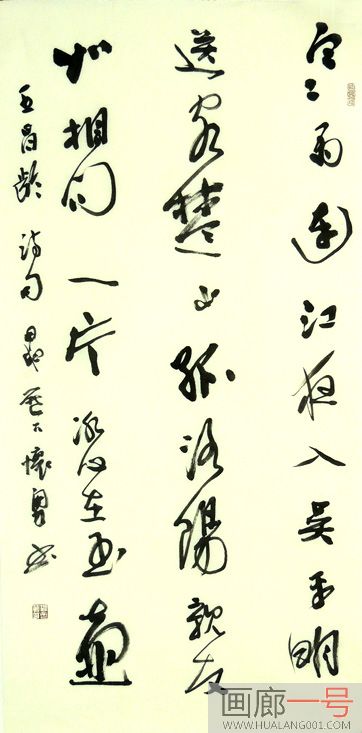 寒雨連江夜入吴平明
送客楚山孤洛陽親友
如相问一片冰心在玉壺
王昌齡詩句懷勇書
画廊一号
WWW.HUALANG001.COM